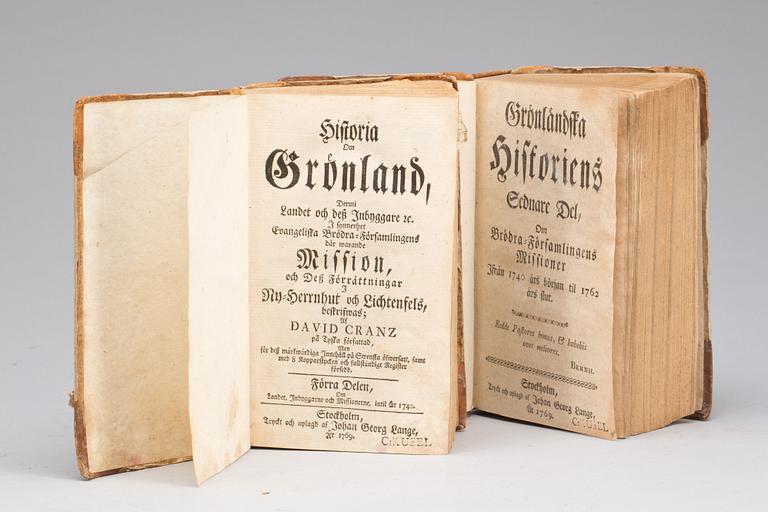 Historia
Om
Grönland,
Deruti
Landet och deß Inbyggare ꝛc.
I synnerhet
Evangeliska Brödra-Församlingens
där warande
Mission,
och Deß Förrättningar
I
Ny-Herrnhut och Lichtenfels,
beskrifwas;
Af
DAVID CRANZ
på Tyska författad,
Men
för deß märkwärdiga Innehåll på Swenska öfwersatt, samt
med 8 Kopparstycken och fullständigt Register
försedd.
Förra Delen,
Om
Landet, Inbyggarne och Missionerne, intil år 1740.
Stockholm,
Tryckt och uplagd af Johan Georg Lange,
År 1769.
C:KUSEL
Grönländska
Historiens
Sednare Del,
Om
Brödra-Församlingens
Missioner
Ifrån 1740 års början til 1762
års slut.
Redde Pastores bonos, & habebis
oves meliores.
BERNH.
Stockholm,
Tryckt och uplagd af Johan Georg Lange,
År 1769.
C:KUSEL